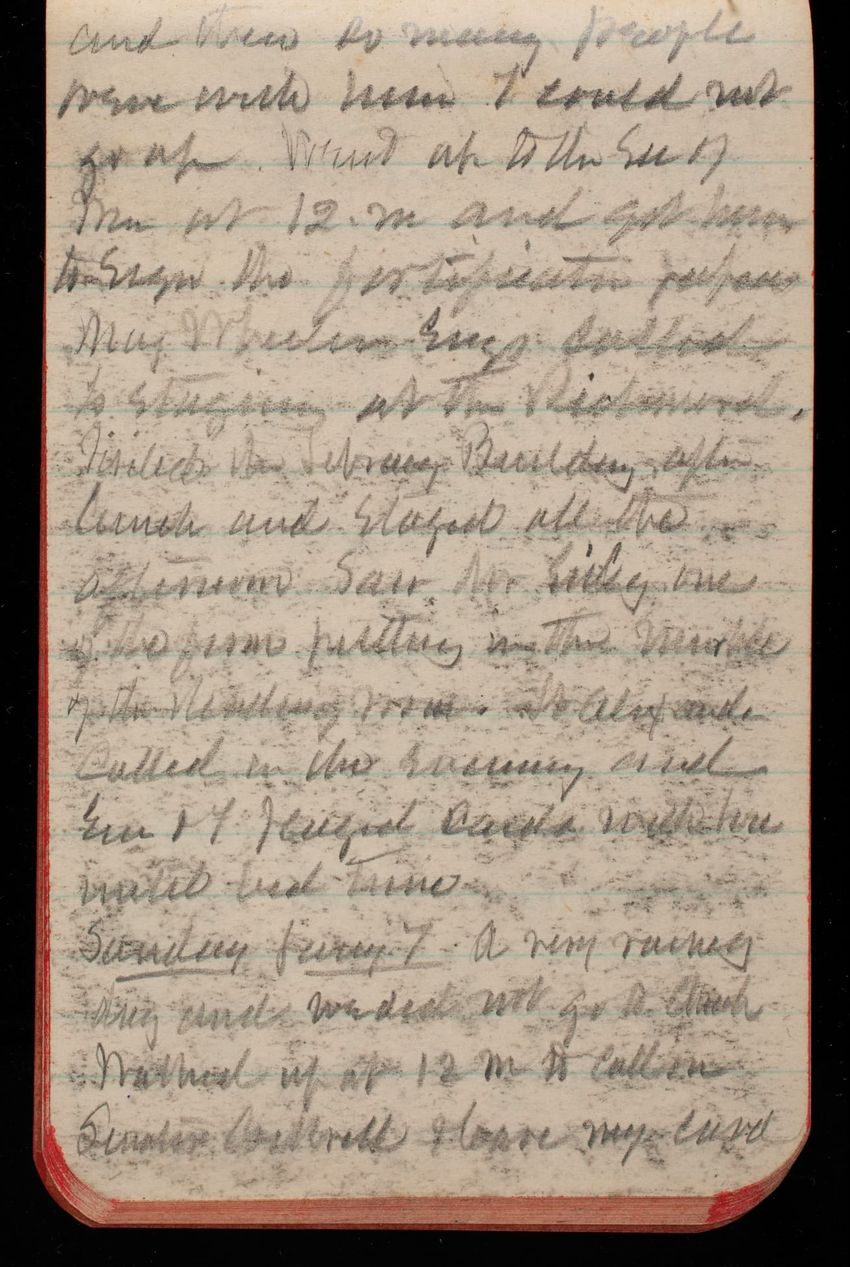 and then so many people
were with him I could not
go up. Went up to the Sec of
War at 12. m and got him
to Sign the fortification papers
Maj Wheeler Engr called
is staying at the Richmond.
Visited the Library Building after
lunch and stayed all the
afternoon Saw Mr one
of the firm putting in the marble
of the Reading room. Alexander
Called in the evening and
I played cards with her
until bed time
Sunday 7 A very rainy
day and we did not go to church
Walked up at 12 m to call on
Senator Cockrell & leave my card